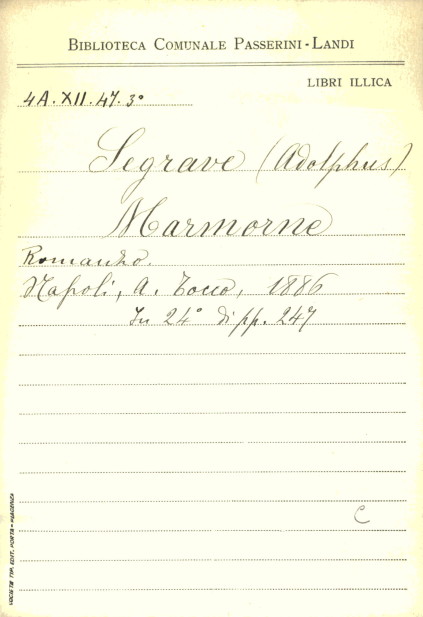 BIBLIOTECA COMUNALE PASSERINI-LANDI
LIBRI ILLICA
4A. XII. 47. 3°
Segrave (Adolphus)
Marmorne
Romanzo.
Napoli, A. Tocco, 1886
In 24° di pp. 247
C
SOCIETÀ TIP. EDIT. PORTA - PIACENZA